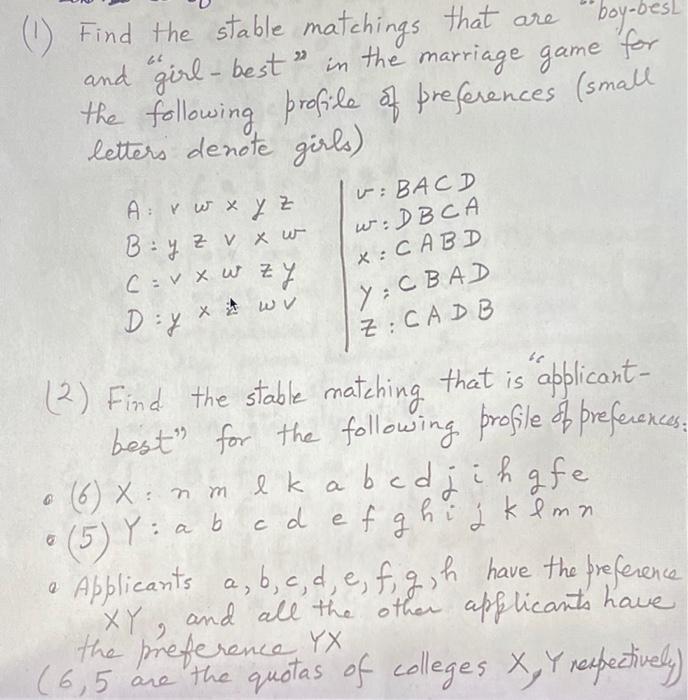 (1) Find the stable matchings that are "boy-best
and "girl-best" in the marriage game for
the following profile of preferences (small
letters denote girls)
A: v w x y z
B: y z v x w
C: v x w z y
D: y x z w v
v: B A C D
w: D B C A
x: C A B D
y: C B A D
z: C A D B
(2) Find the stable matching that is "applicant-
best" for the following profile of preferences:
(6) X: n m l k a b c d j i h g f e
(5) Y: a b c d e f g h i j k l m n
Applicants a, b, c, d, e, f, g, h have the preference
XY, and all the other applicants have
the preference YX
(6, 5 are the quotas of colleges X, Y respectively)